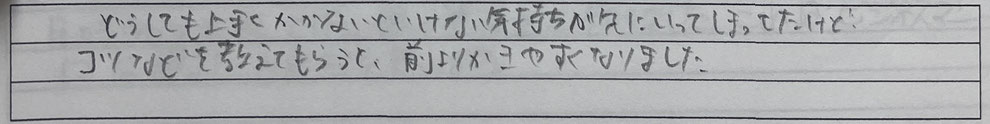 どうしても上手くかかないといけない気持ちが先にいってしまってたけど
コツなどを教えてもらうと、前よりかきやすくなりました